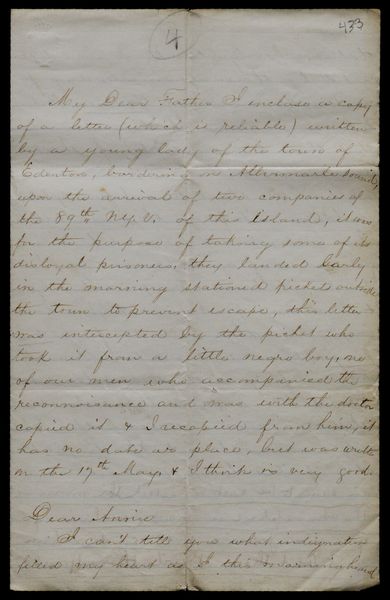 4
433
My Dear Father I inclose a copy
of a letter (which is reliable) written
by a young lady of the town of
Edenton, bordering on Albermarle Sound,
upon the arrival of two companies of
the 89th N.Y.V. of this Island, it was
for the purpose of taking some of its
disloyal prisoners, they landed Early
in the morning stationed picket outside
the town to prevent escape, this letter
was intercepted by the picket who
took it from a little negro boy, one
of our men who accompanied the
reconnoisance and was with the doctor
copied it & I recopied from him, it
has no date or place, but was written
on the 17th May & I think is very good.
Dear Annie
I can't tell you what indignation
filled my heart as I this morning heard